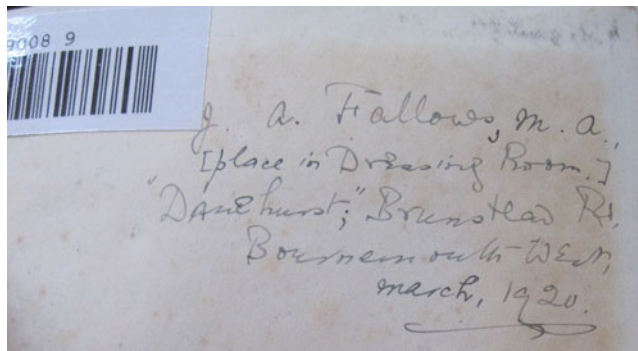 9008 9
J. A. Fallows, M. A.,
[place in Dressing Room.]
"Danehurst," Brunstead Rd,
Bournemouth West,
March, 1920.